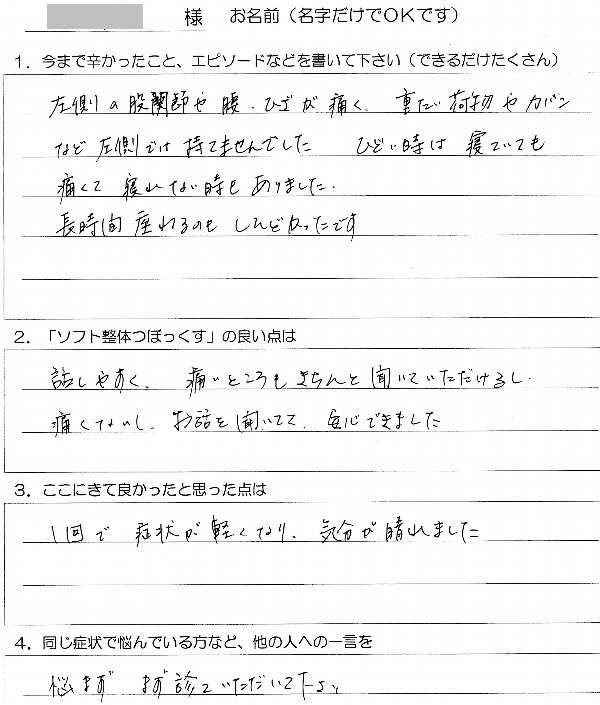 様 お名前（名字だけでOKです）
1．今まで辛かったこと、エピソードなどを書いて下さい（できるだけたくさん）
左側の股関節や腰、ひざが痛く、重たい荷物やカバン
など左側では持てませんでした ひどい時は寝ていても
痛くて寝れない時もありました．
長時間座わるのもしんどかったです
2．「ソフト整体つぼっくす」の良い点は
話しやすく、痛いところもきちんと聞いていただけるし、
痛くないし、お話を聞いてて、安心できました
3．ここにきて良かったと思った点は
1回で症状が軽くなり、気分が晴れました
4．同じ症状で悩んでいる方など、他の人への一言を
悩まず まず診ていただいて下さい